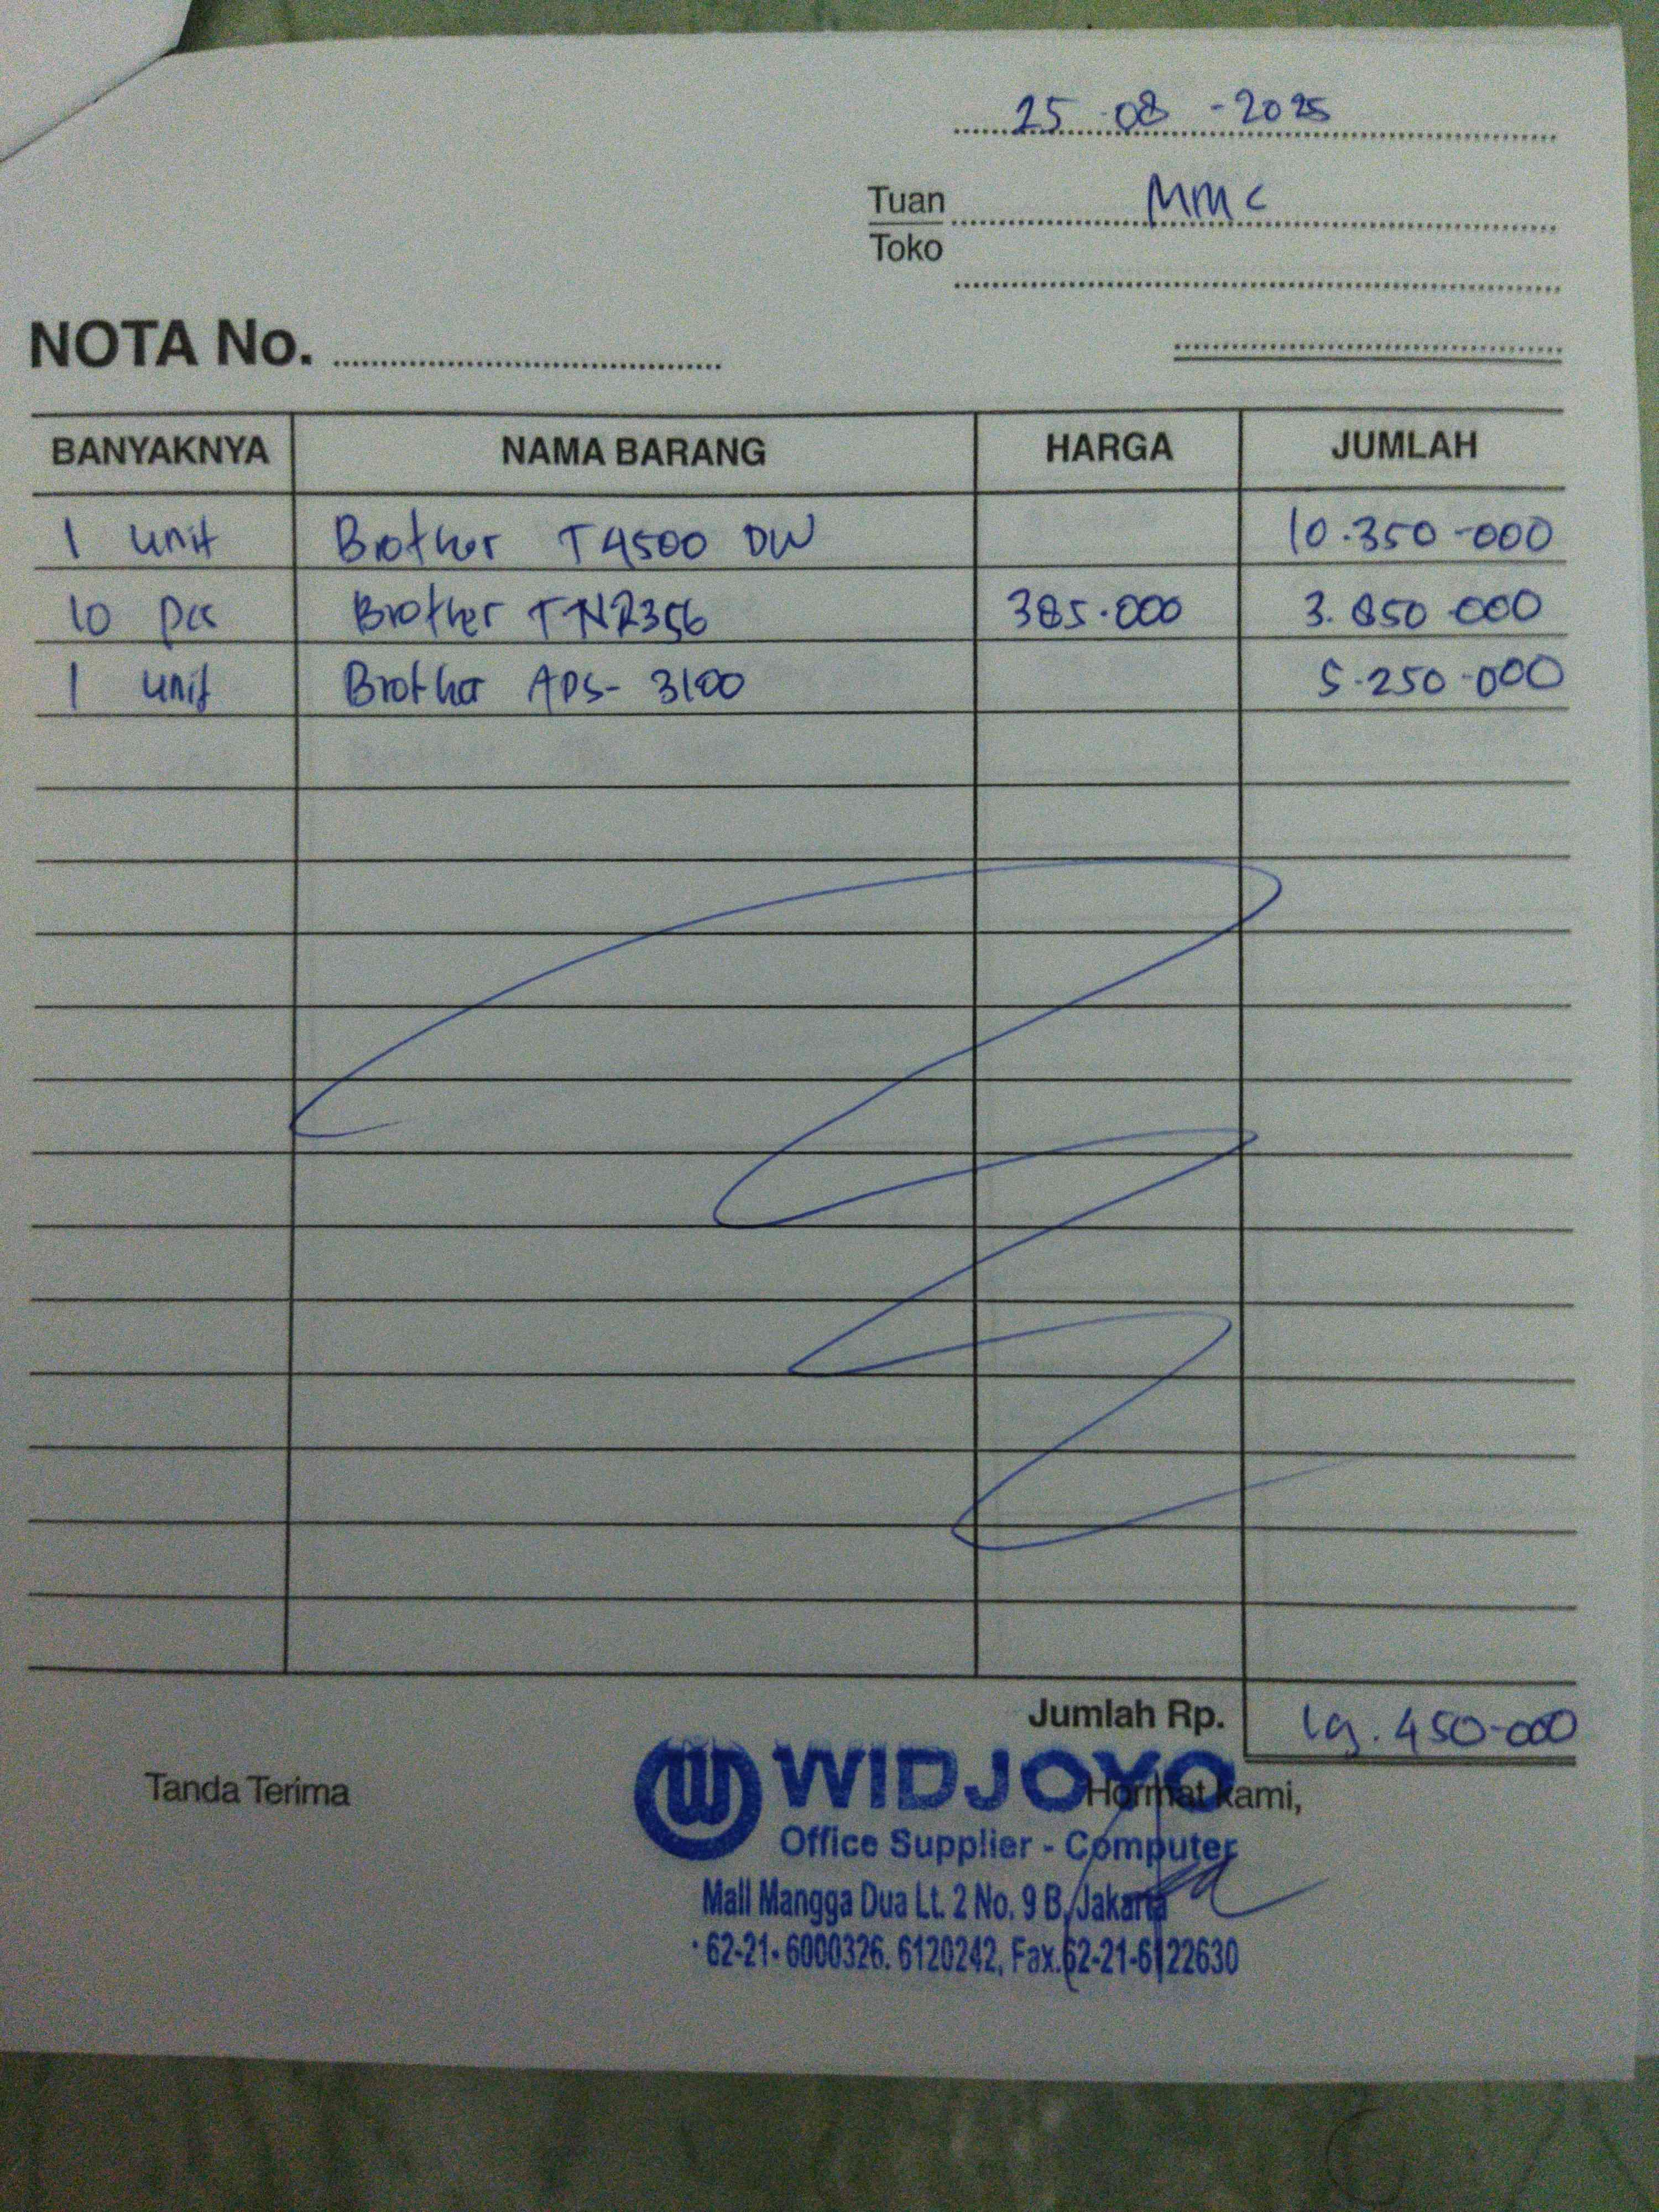 25-08-2025
Tuan MMC
Toko
NOTA No.
BANYAKNYA NAMA BARANG HARGA JUMLAH
1 unit Brother T4500 DW 10.350-000
10 pcs Brother TN2356 385.000 3.850.000
1 unit Brother ADS-3100 5.250-000
Jumlah Rp. 19.450-000
Tanda Terima Hormat kami,
WIDJOYO
Office Supplier - Computer
Mall Mangga Dua Lt. 2 No. 9 B, Jakarta
62-21-6000326. 6120242, Fax.62-21-6122630